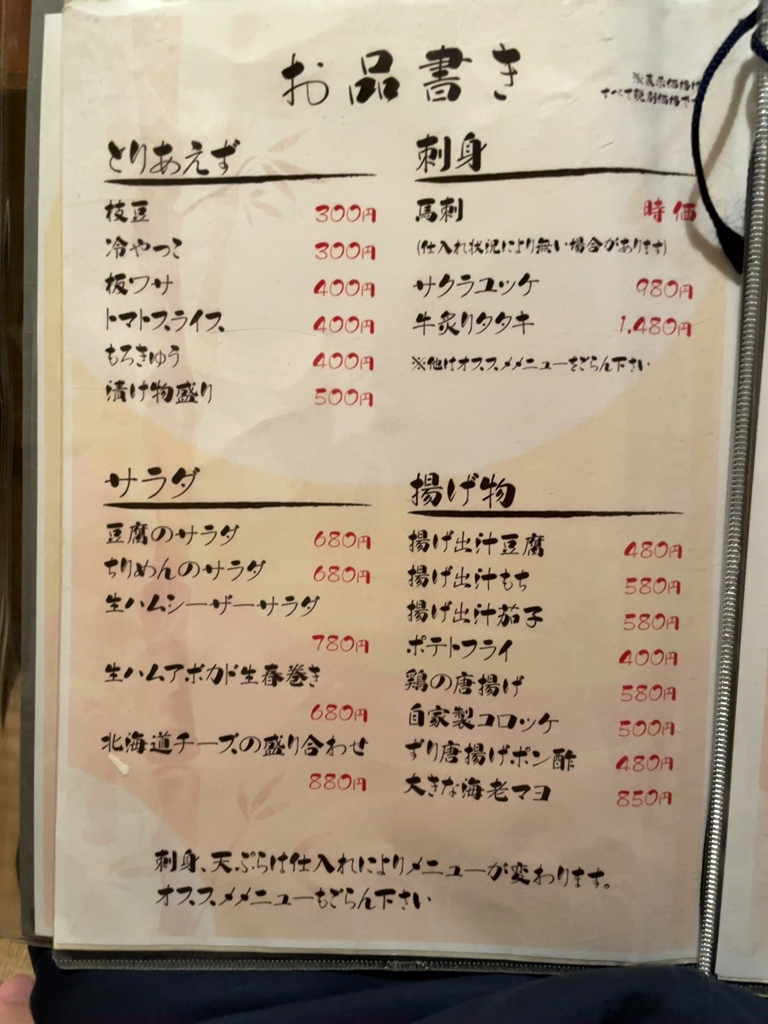 お品書き
※表示価格は
すべて税別価格です
とりあえず
枝豆 300円
冷やっこ 300円
板ワサ 400円
トマトスライス 400円
もろきゅう 400円
漬け物盛り 500円
刺身
馬刺 時価
(仕入れ状況により無い場合があります)
サクラユッケ 980円
牛炙りタタキ 1,480円
※他はオススメメニューをごらん下さい
サラダ
豆腐のサラダ 680円
ちりめんのサラダ 680円
生ハムシーザーサラダ
780円
生ハムアボカド生春巻き
680円
北海道チーズの盛り合わせ
880円
揚げ物
揚げ出汁豆腐 480円
揚げ出汁もち 580円
揚げ出汁茄子 580円
ポテトフライ 400円
鶏の唐揚げ 580円
自家製コロッケ 500円
ずり唐揚げポン酢 480円
大きな海老マヨ 850円
刺身、天ぷらは仕入れによりメニューが変わります。
オススメメニューもごらん下さい